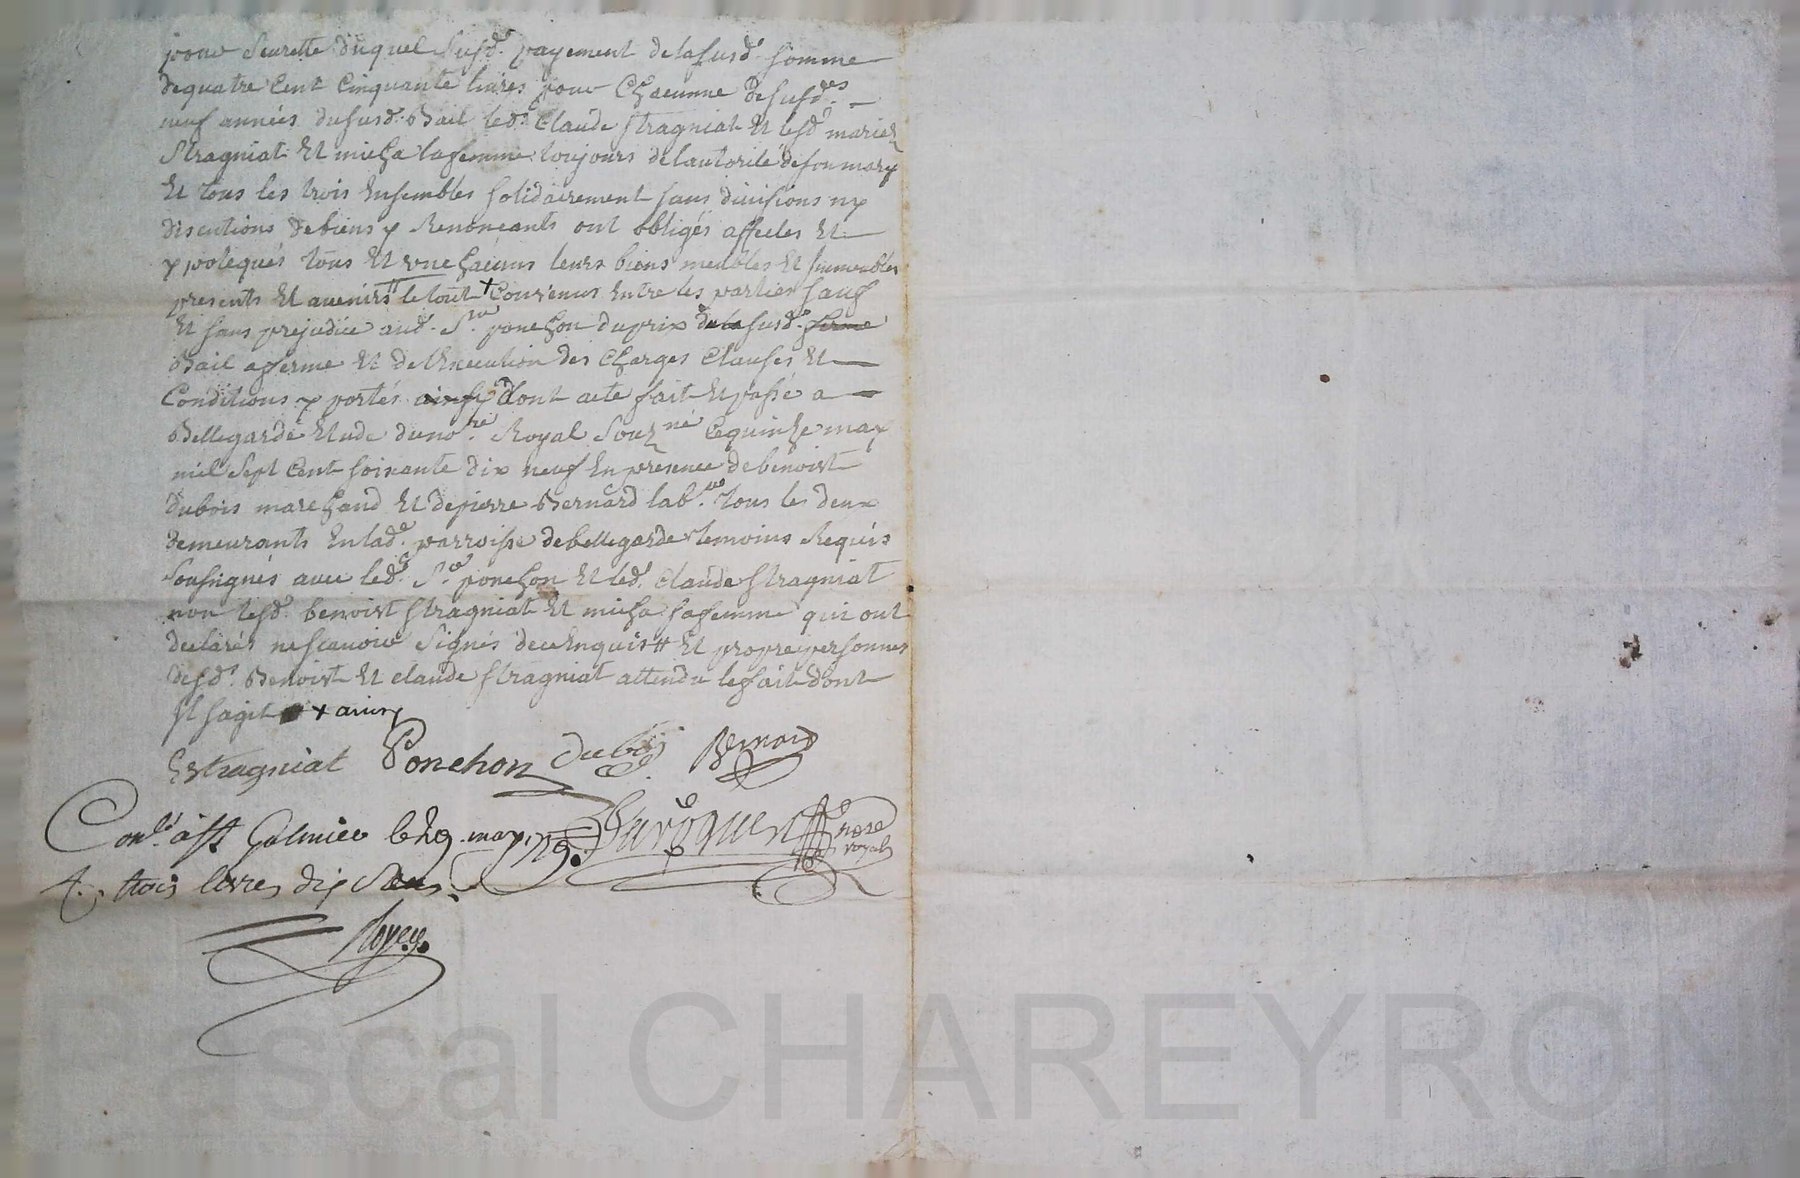 pour seurette duquel susd.t payement de la susd.e somme
de quatre cent cinquante livres pour chacunne desusd.es
neuf années du susd. Bail led.t Claude Stragniat Et lesd.t mariez
Stragniat Et micha la femme toujours de l'autorité de son mary
Et tous les trois Ensembles solidairement sans divisions ny
discutions de biens y Renonceants ont obligés affectes Et
ypotequés tous Et une chacuns leurs biens meubles Et Immeubles
presents Et avenirs le tout + Convenus Entre les parties sauf
Et sans prejudice aud. S.r ponchon du prix de la susd.e ferme
Bail afferme Et de l'Execution des Charges Clauses Et
Conditions y portés ainsy dont acte fait Et passé a
Bellegarde Etude du no.re Royal Souz.né Ce quinze may
mil Sept Cent soixante dix neuf En presence de benoist
dubois marchand Et de pierre Bernard lab.r tous les deux
demeurants En lad.e parroisse de bellegarde temoins Requis
soussignés avec led.t S.r ponchon Et led.t Claude Stragniat
non lesd.t benoist Stragniat Et micha sa femme qui ont
declarés ne scavoir Signés de ce Enquis # Et propre personnes
desd.t Benoist Et claude Stragniat attendu le fait dont
Il sagit + ainsy
Estragniat Ponchon dubois Bernard
Con.lé à St Galmier le 29 may 1779. Duroquer no.re
royal
R. trois livres dix Sous
Royer
Pascal CHAREYRON